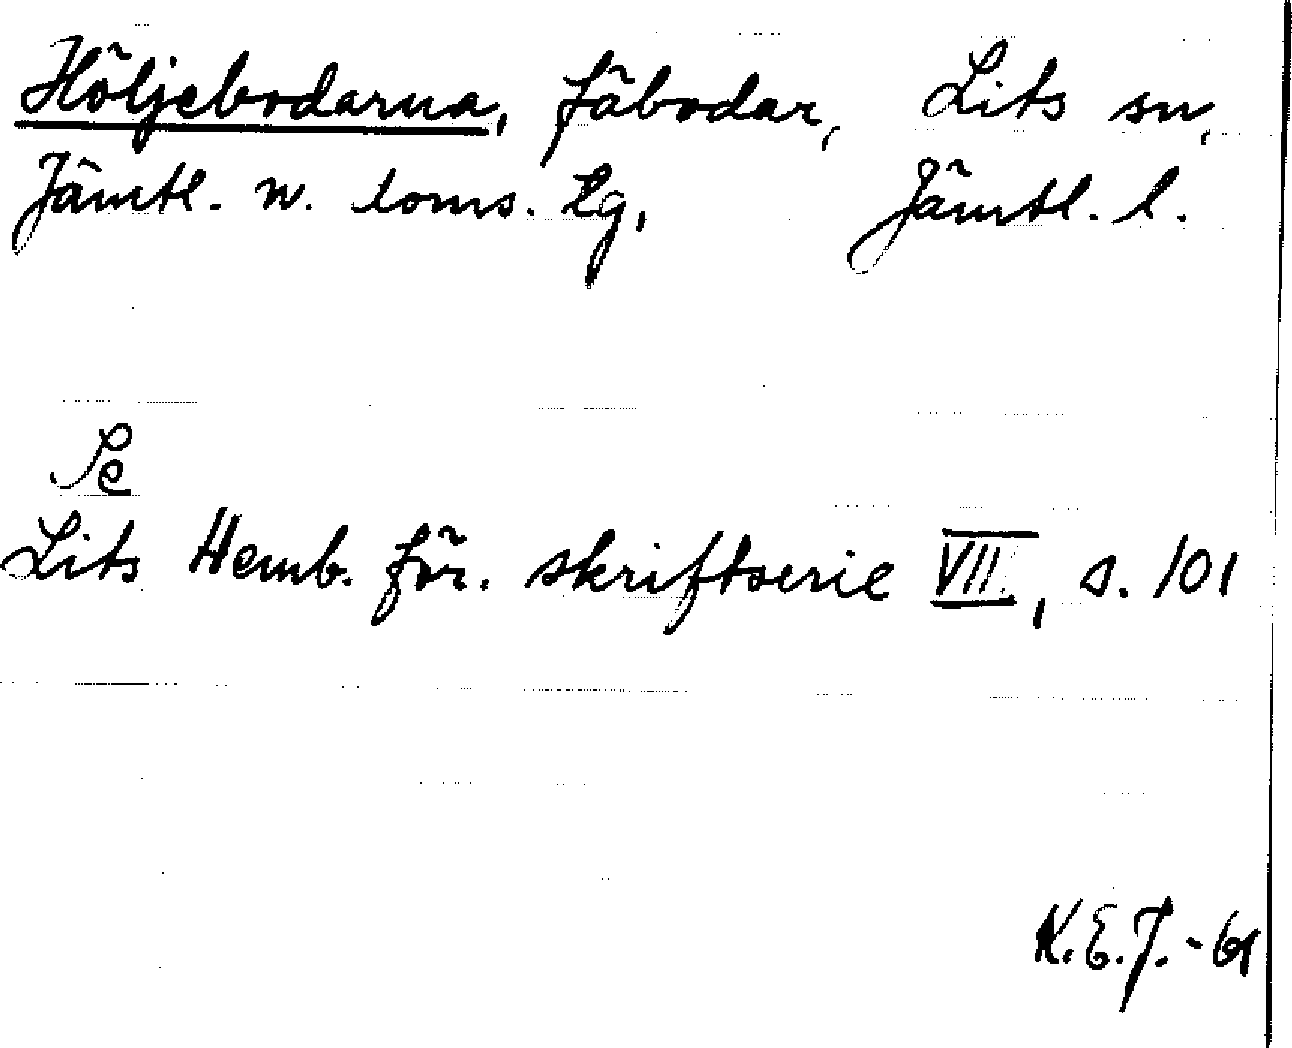 Höljebodarna, fäbodar, Lits sn,
Jämtl. n. doms. lg, Jämtl. l.
Se
Lits Hemb. för. skriftserie VII, s. 101
K.E.J. - 61